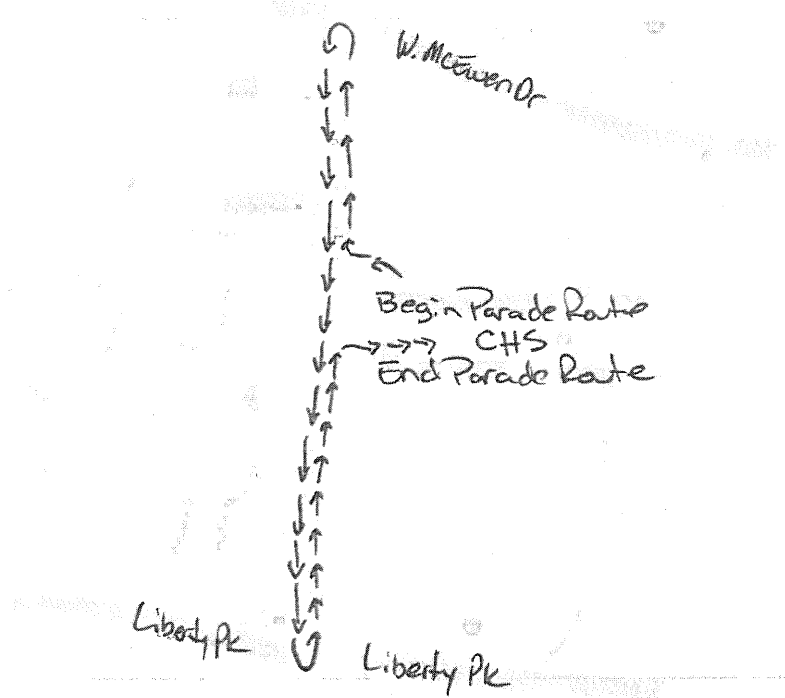 W. McEwen Dr
Begin Parade Route
CHS
End Parade Route
Liberty Pk
Liberty Pk